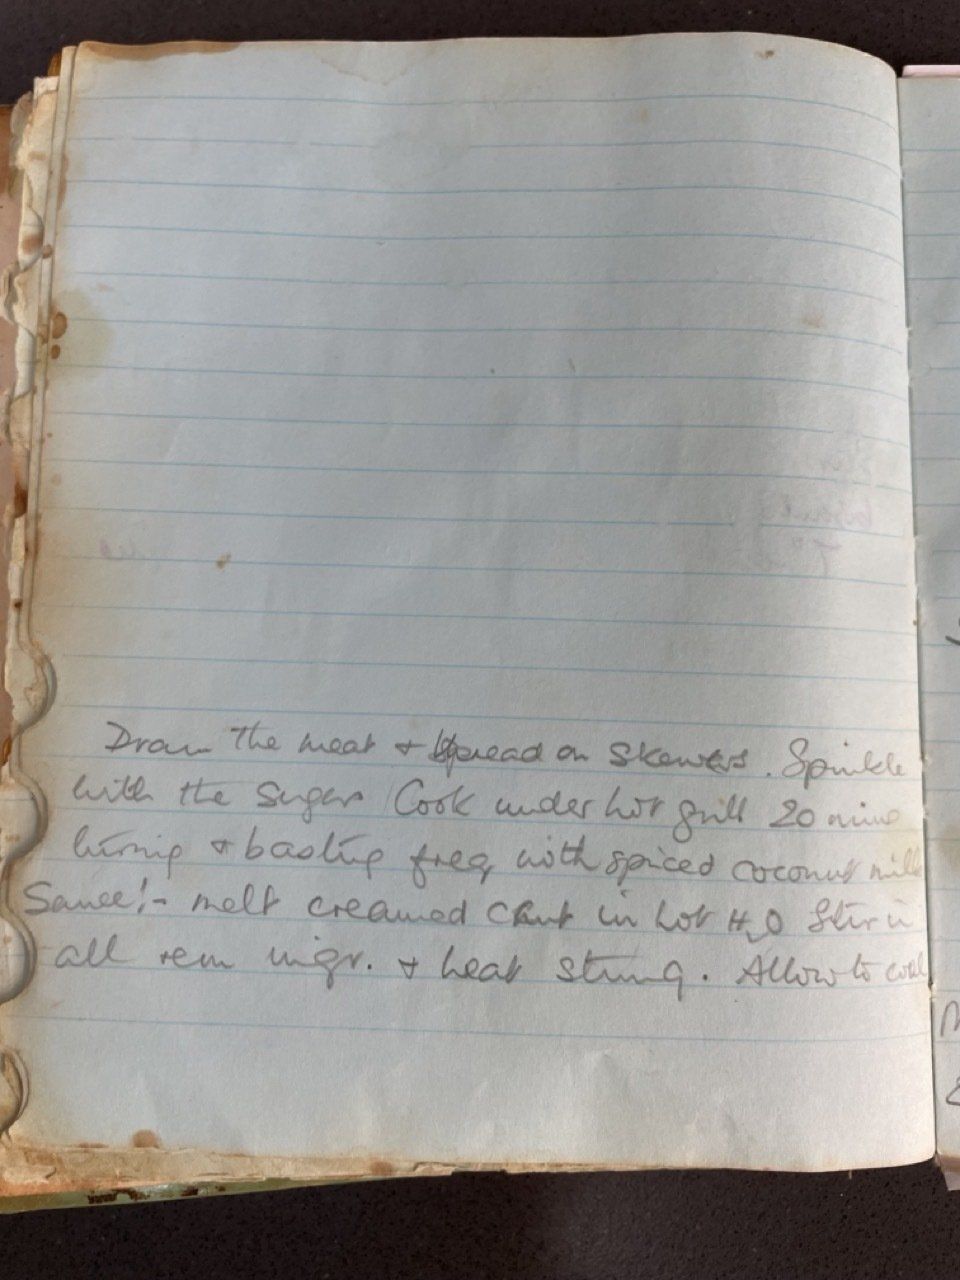 Drain the meat + thread on skewers. Sprinkle
with the sugar Cook under hot grill 20 mins
turning + basting freq with spiced coconut milk
Sauce:- melt creamed cnut in hot H2O Stir in
all rem ingr. + heat stirring. Allow to cool